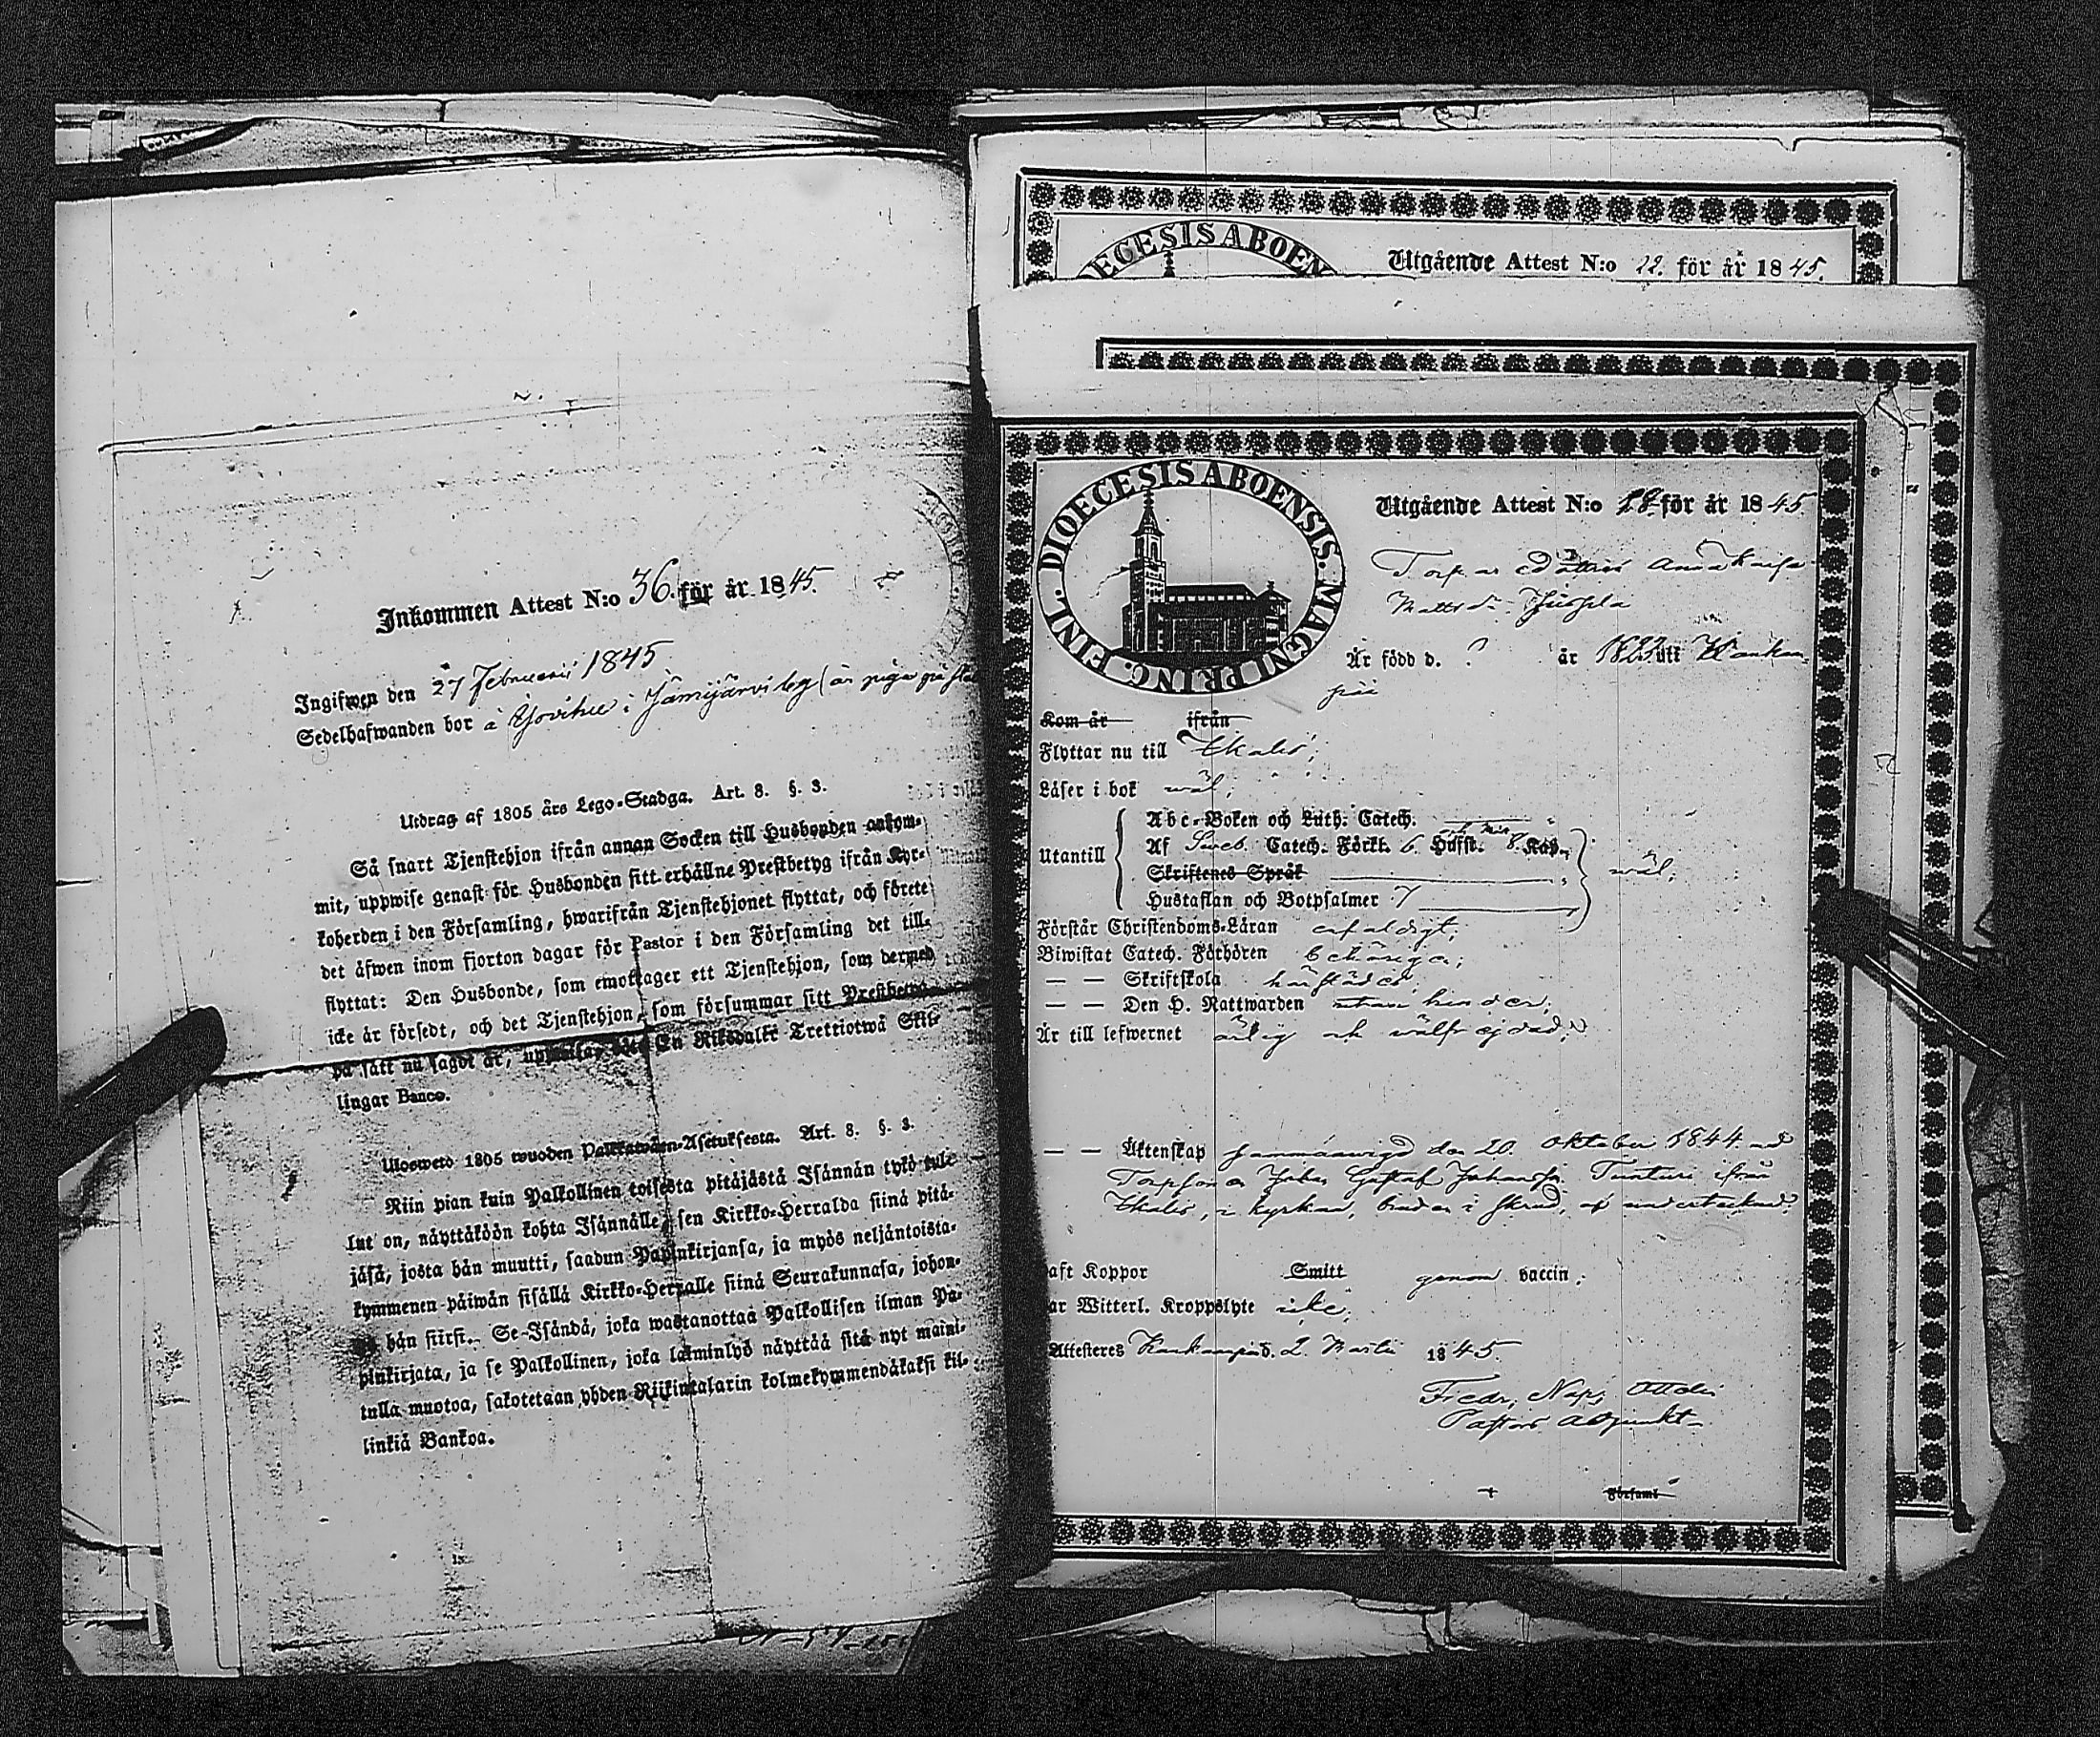 Inkommen Attest N:o 36. för år 1845.
Ingifwen den 27 Februarii 1845
Sedelhafwanden bor å i Jämijärvi
Utdrag af 1805 års Lego-Stadga. Art. 8. §. 3.
Så snart Tjenstehjon ifrån annan Socken till Husbonden ankom-
mit, uppwise genast för Husbonden sitt erhållne Prestbetyg ifrån Kyr-
koherden i den Församling, hwarifrån Tjenstehjonet flyttat, och förete
det äfwen inom fjorton dagar för Pastor i den Församling det till-
flyttat: Den Husbonde, som emottager ett Tjenstehjon, som dermed
icke är försedt, och det Tjenstehjon, som försummar sitt Prestbetyg
på sätt nu sagdt är, uppwisa, böte En Riksdaler Trettiotwå Skil-
lingar Banco.
Uloswetö 1805 wuoden Palkkawäen-Asetuksesta. Art. 8. §. 3.
Niin pian kuin Palkollinen toisesta pitäjästä Isännän tykö tule-
lut on, näyttäköön kohta Isännälle, sen Kirkko-Herralda siinä pitä-
jäsä, josta hän muutti, saadun Papinkirjansa, ja myös neljäntoista-
kymmenen päiwän sisällä Kirkko-Herralle siinä Seurakunnasa, johon-
ga hän siirsi. Se Isändä, joka wastanottaa Palkollisen ilman Pa-
pinkirjata, ja se Palkollinen, joka laiminlyö näyttää sitä nyt maini-
tulla muotoa, sakotetaan yhden Riikintalarin kolmekymmendäkaksi kil-
linkiä Bankoa.
DIOECESIS ABOEN
Utgående Attest N:o 22. för år 1845.
DIOECESIS ABOENSIS. MAGNI PRINC. FINL.
Utgående Attest N:o 28 för år 1845
Matts dr
Är född d. ? år 1823 uti
Kom år ifrån
Flyttar nu till Ikalis;
Läser i bok wäl;
Utantill
Abc-Boken och Luth. Catech.
Af Sweb. Catech. Förkl. 6. Hufst. 8. Kap.
Skriftenes Språk
Hustaflan och Botpsalmer 7
wäl;
Förstår Christendoms-Läran enfaldigt;
Biwistat Catech. Förhören behörigen;
— — Skriftskola härstädes,
— — Den H. Nattwarden utan hinder;
Är till lefwernet ärlig och wälfrejdad;
— — Äktenskap sammanwigd den 20. Oktober 1844 med
Torpsonen Gustaf Johansson Tunturi ifrån
Ikalis, i kyrkan, bruden i skrud, af undertecknad.
aft Koppor Smitt genom vaccin;
ar Witterl. Kroppslyte icke;
Attesteres Kankaanpää d. 2. Martii 1845
Fredr.
Pastors Adjunkt
Församl